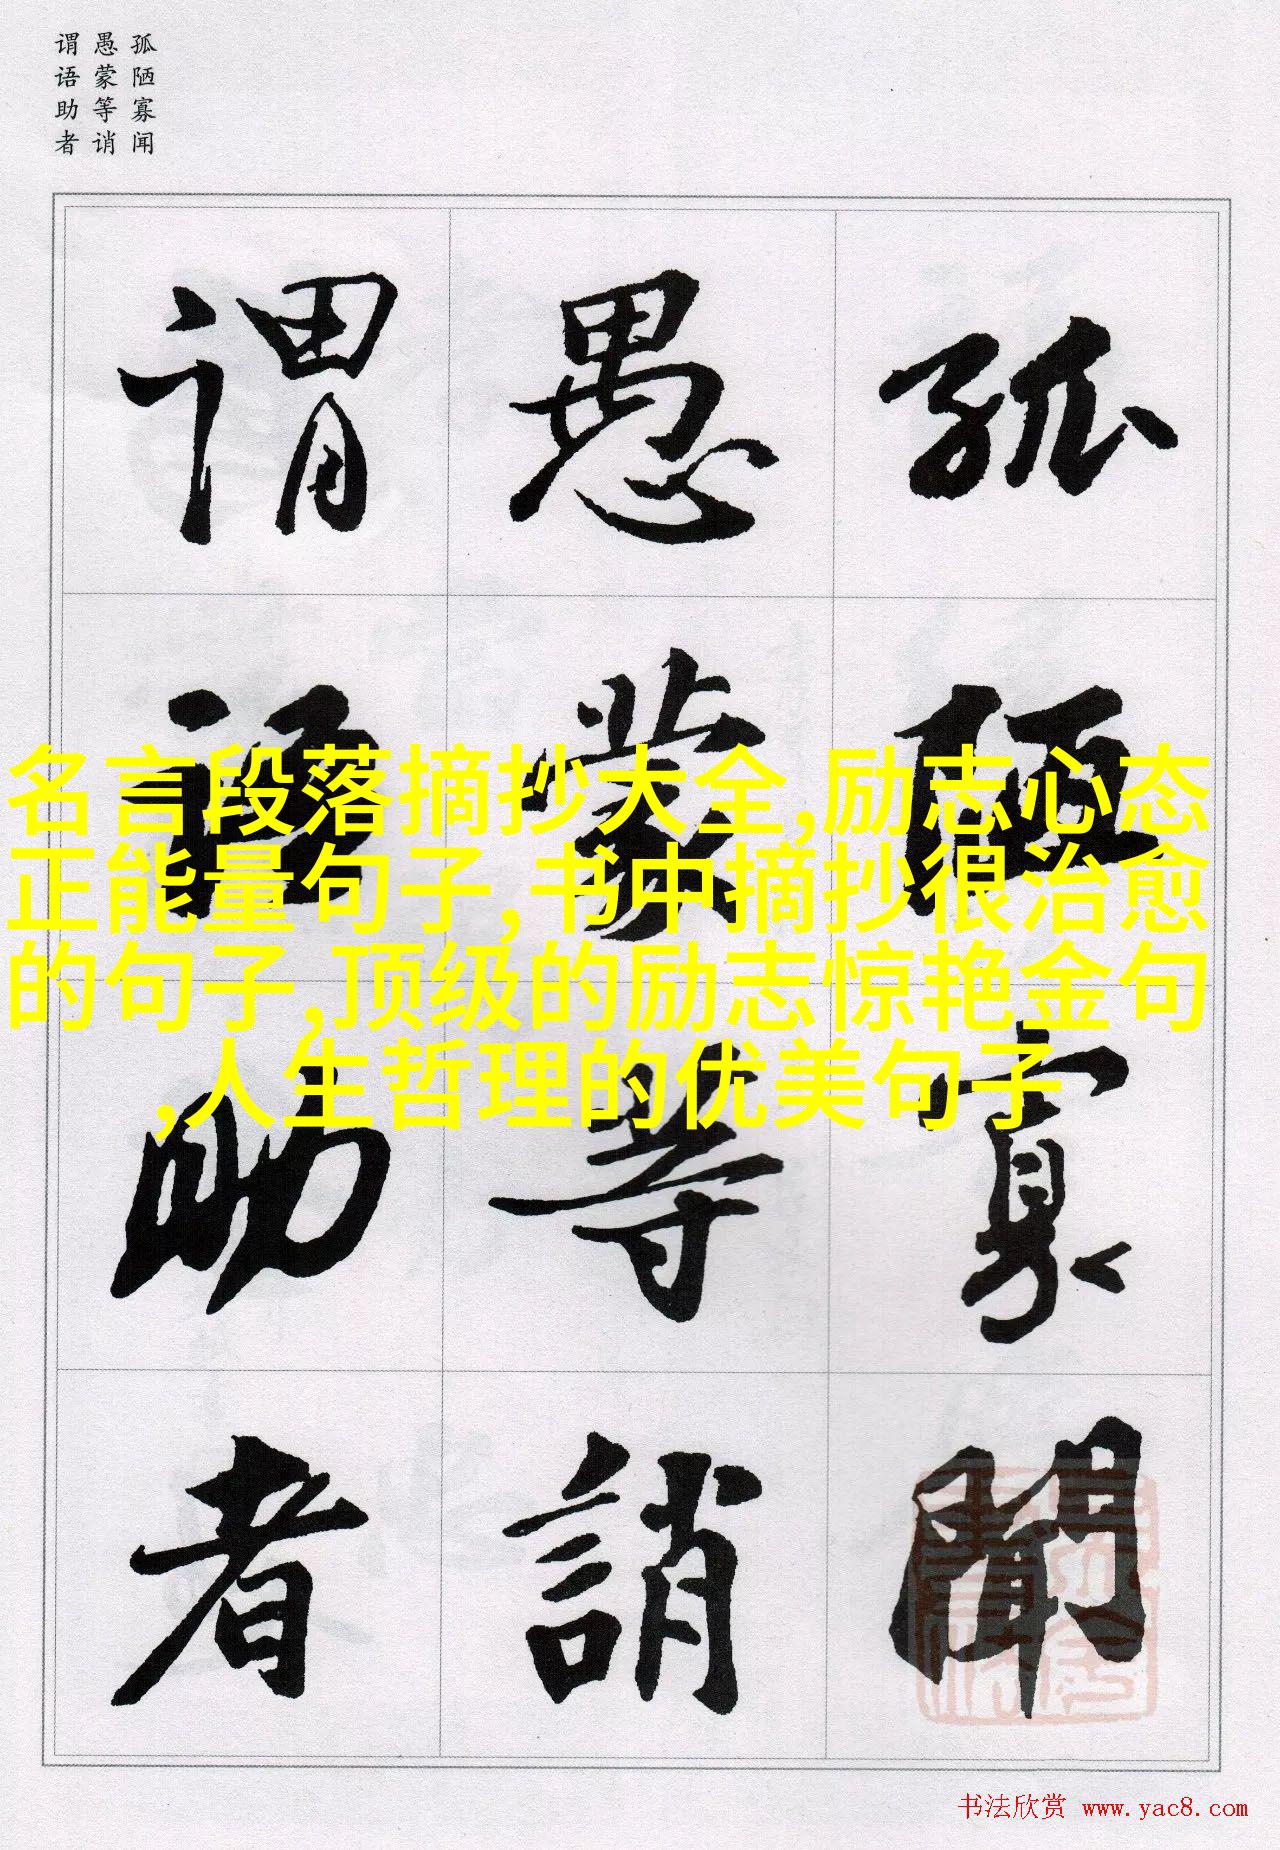 孤陋寡闻
愚蒙等诮
谓语助者
孤陋寡聞
愚蒙等誚
谓语助者
名言段落摘抄大全,励志心态
正能量句子,书中摘抄很治愈
的句子,顶级的励志惊艳金句
,人生哲理的优美句子
书法欣赏 www.yac8.com